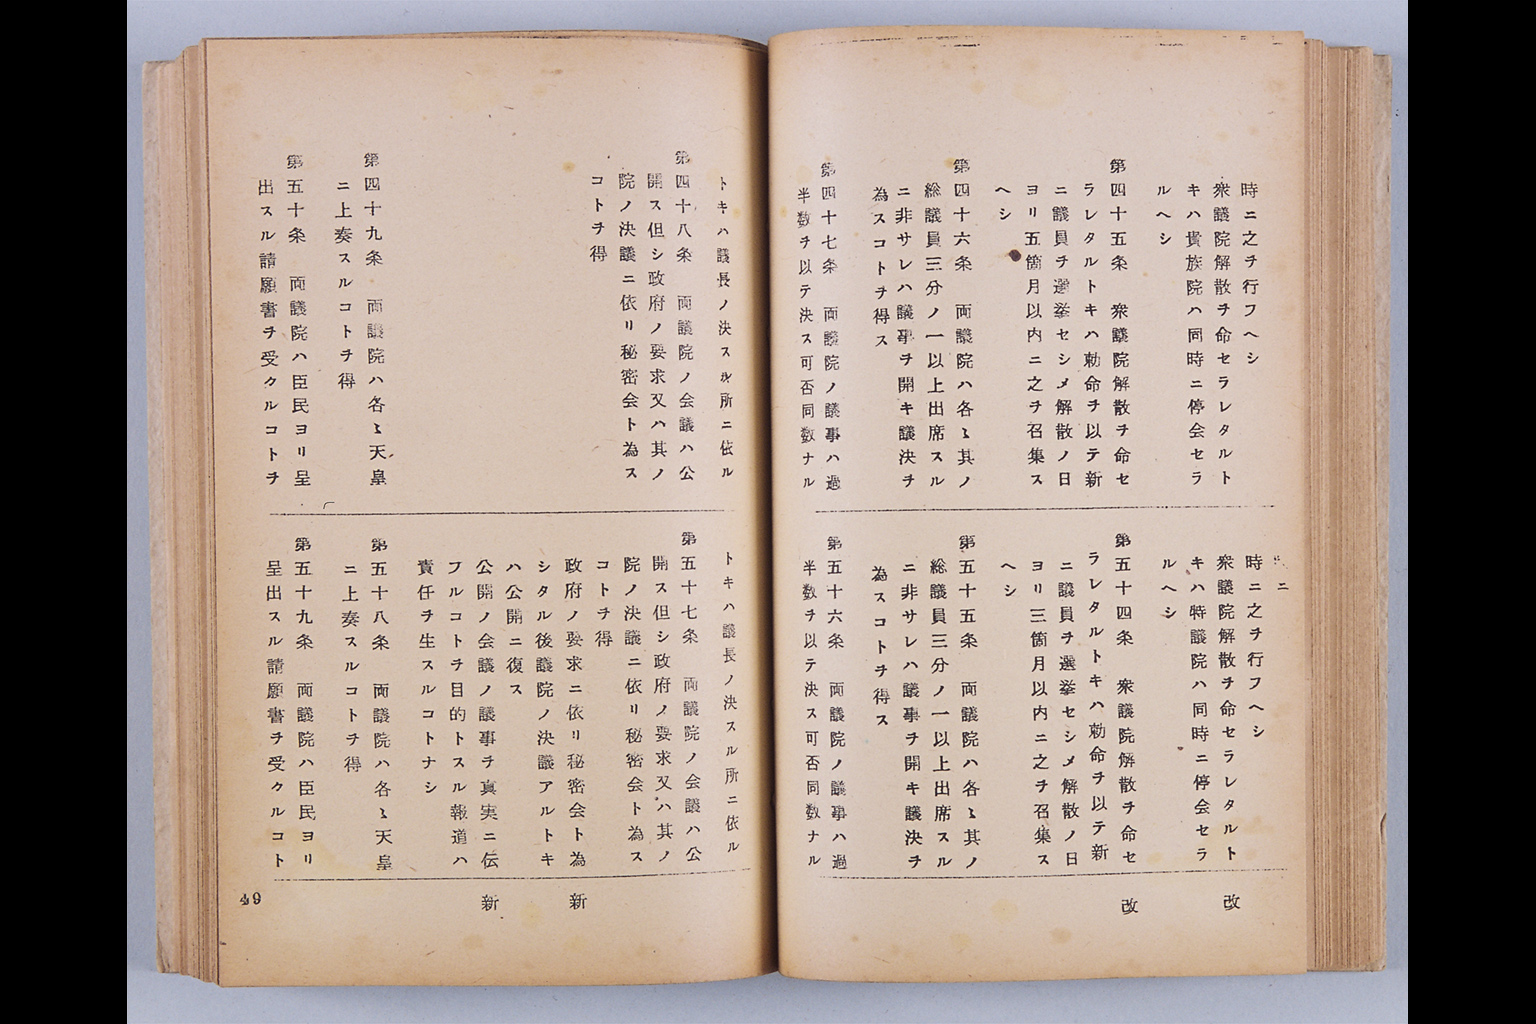 時ニ之ヲ行フヘシ
衆議院解散ヲ命セラレタルト
キハ貴族院ハ同時ニ停会セラ
ルヘシ
第四十五条　衆議院解散ヲ命セ
ラレタルトキハ勅命ヲ以テ新
ニ議員ヲ選挙セシメ解散ノ日
ヨリ五箇月以内ニ之ヲ召集ス
ヘシ
第四十六条　両議院ハ各〻其ノ
総議員三分ノ一以上出席スル
ニ非サレハ議事ヲ開キ議決ヲ
為スコトヲ得ス
第四十七条　両議院ノ議事ハ過
半数ヲ以テ決ス可否同数ナル
時ニ之ヲ行フヘシ
衆議院解散ヲ命セラレタルト
キハ特議院ハ同時ニ停会セラ
ルヘシ
第五十四条　衆議院解散ヲ命セ
ラレタルトキハ勅命ヲ以テ新
ニ議員ヲ選挙セシメ解散ノ日
ヨリ三箇月以内ニ之ヲ召集ス
ヘシ
第五十五条　両議院ハ各〻其ノ
総議員三分ノ一以上出席スル
ニ非サレハ議事ヲ開キ議決ヲ
為スコトヲ得ス
第五十六条　両議院ノ議事ハ過
半数ヲ以テ決ス可否同数ナル
改
改
トキハ議長ノ決スル所ニ依ル
第四十八条　両議院ノ会議ハ公
開ス但シ政府ノ要求又ハ其ノ
院ノ決議ニ依リ秘密会ト為ス
コトヲ得
第四十九条　両議院ハ各〻天皇
ニ上奏スルコトヲ得
第五十条　両議院ハ臣民ヨリ呈
出スル請願書ヲ受クルコトヲ
トキハ議長ノ決スル所ニ依ル
第五十七条　両議院ノ会議ハ公
開ス但シ政府ノ要求又ハ其ノ
院ノ決議ニ依リ秘密会ト為ス
コトヲ得
政府ノ要求ニ依リ秘密会ト為
シタル後議院ノ決議アルトキ
ハ公開ニ復ス
公開ノ会議ノ議事ヲ真実ニ伝
フルコトヲ目的トスル報道ハ
責任ヲ生スルコトナシ
第五十八条　両議院ハ各〻天皇
ニ上奏スルコトヲ得
第五十九条　両議院ハ臣民ヨリ
呈出スル請願書ヲ受クルコト
新
新
49